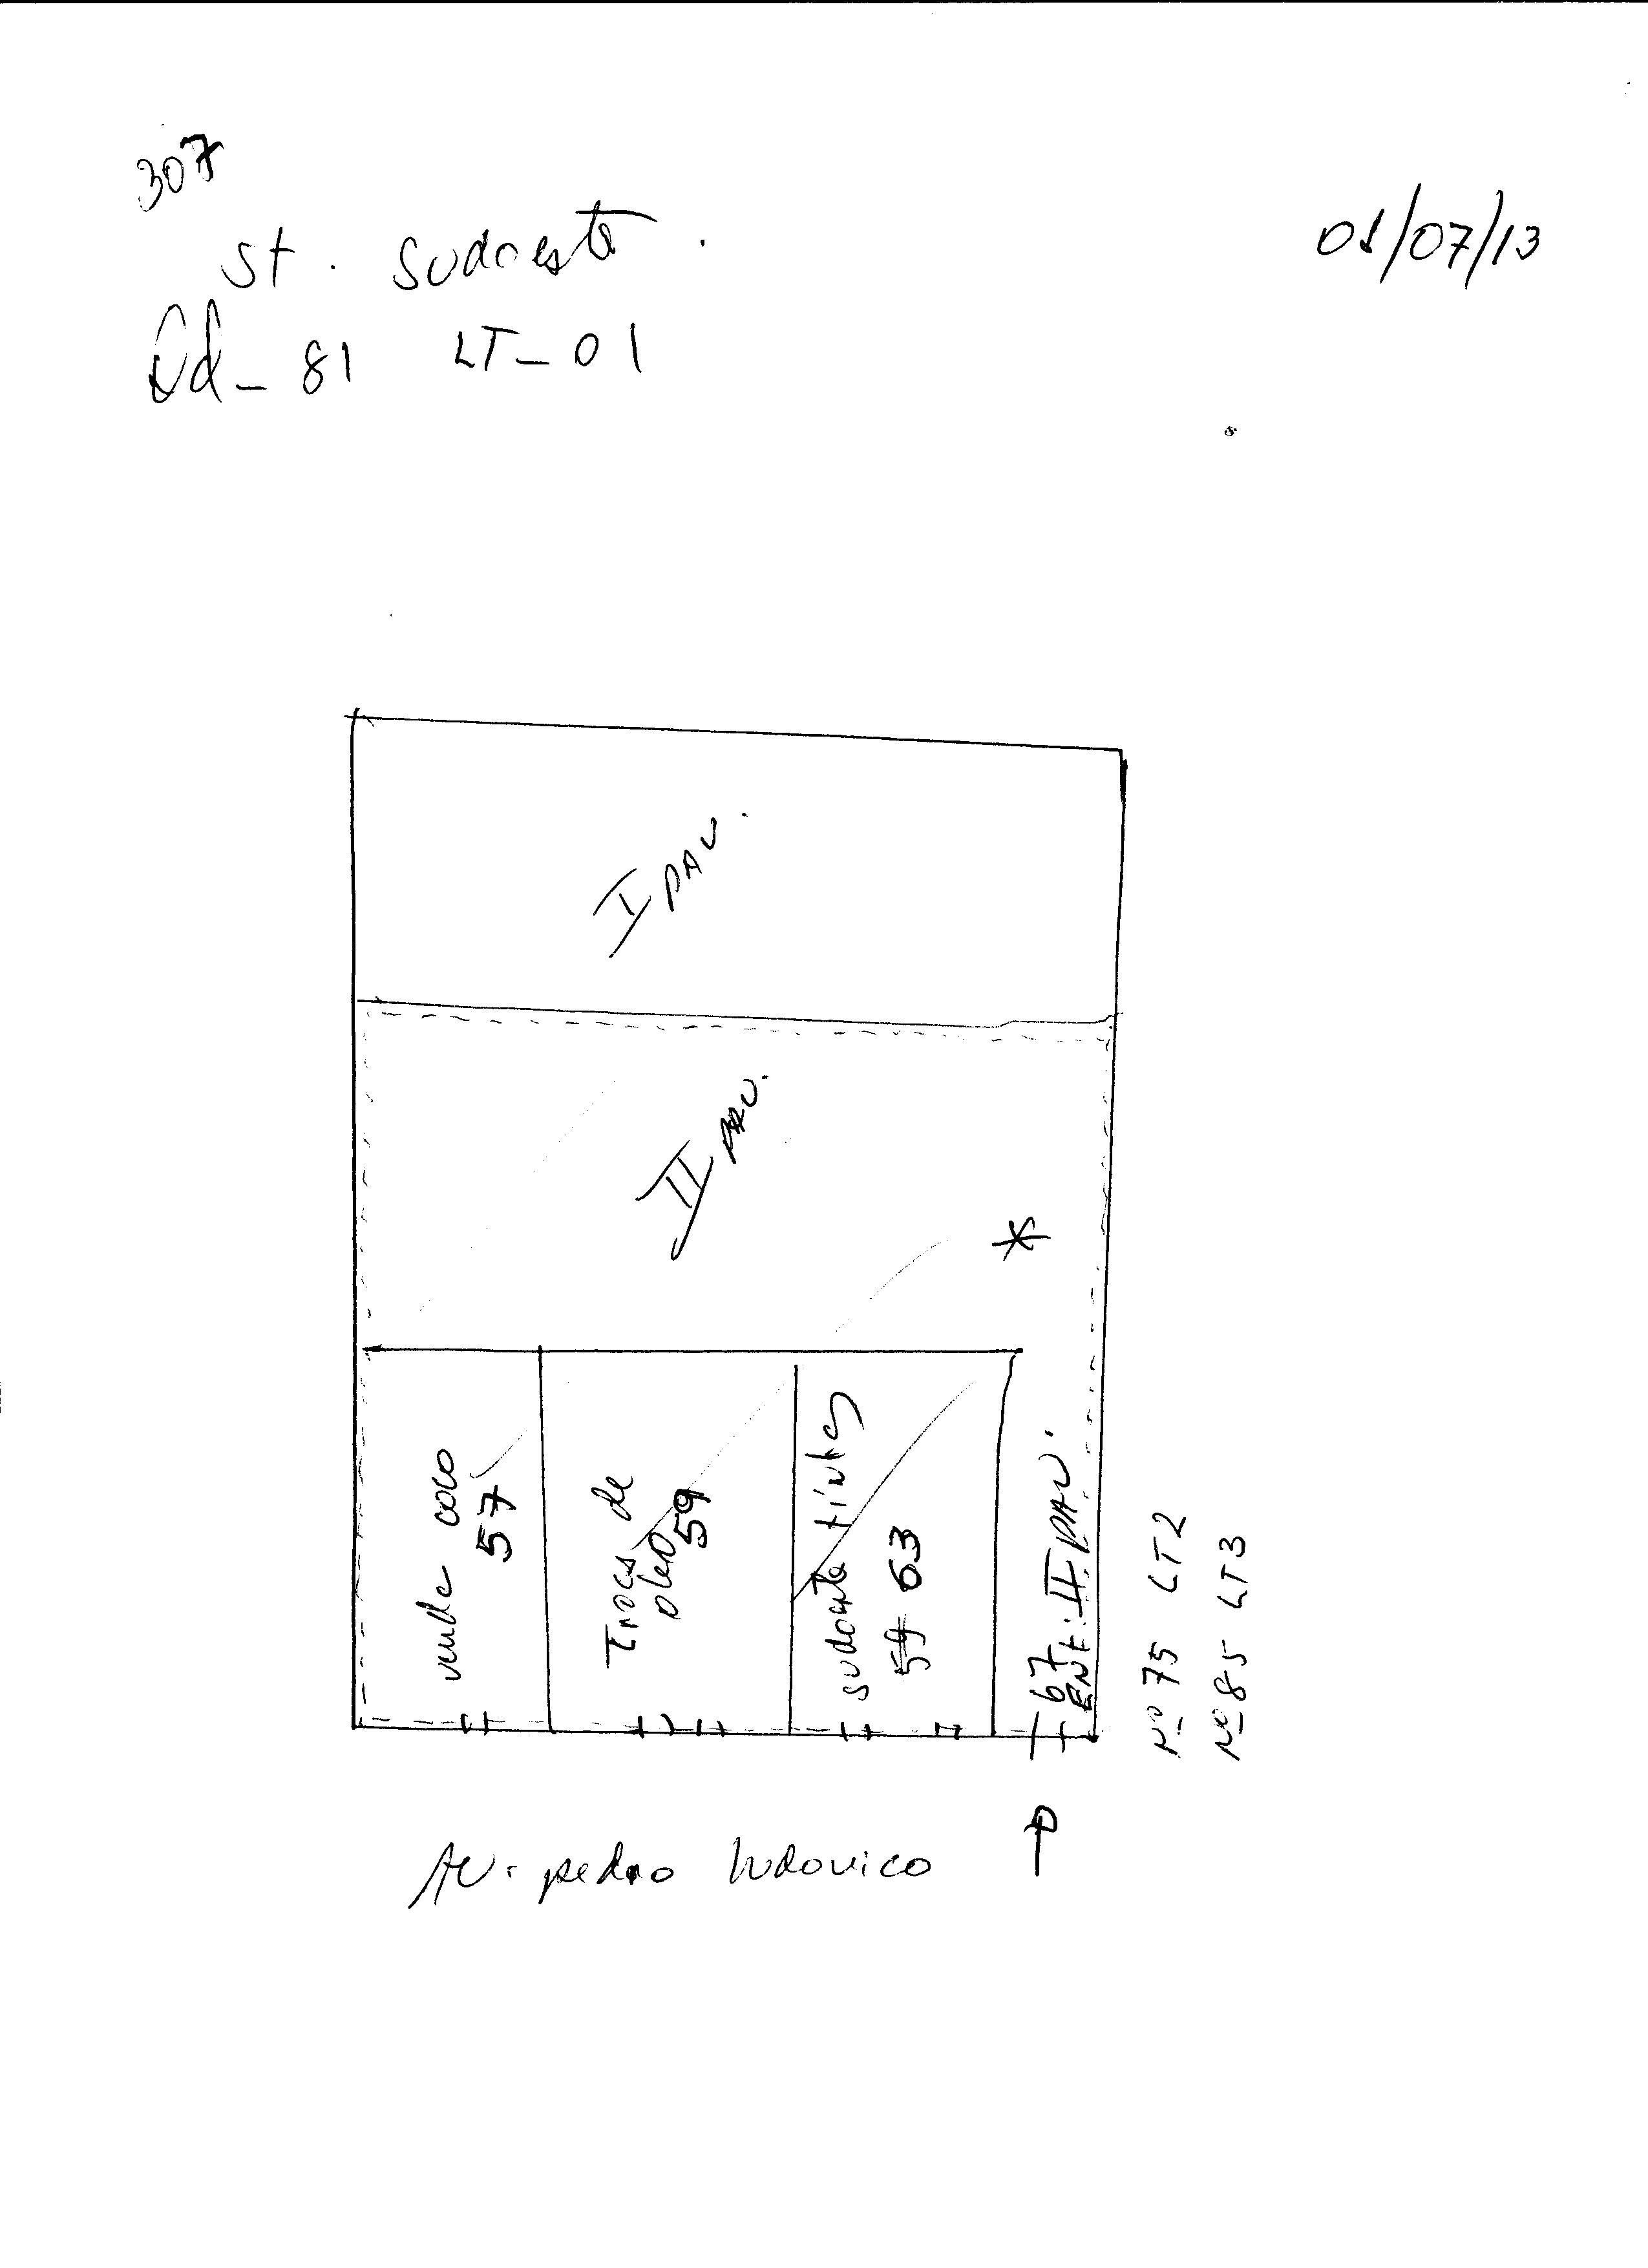 307
St. Sudoeste.
Qd - 81 LT - 01
01/07/13
I PAV.
II PAV.
*
vende coco
57
Troca de
oleo 59
sudoeste tintas
59 63
67
ENT. II PAV.
Nº 75 LT2
Nº 85 LT3
Av. pedro ludovico